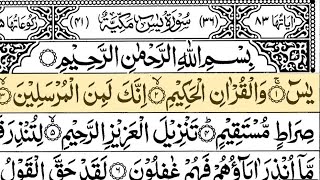 اٰیاتها ٨٣ (٣٦) سُوْرَةُ يٰسٓ مَكِّيَّةٌ (٤١) رکوعاتها
بِسْمِ اللّٰهِ الرَّحْمٰنِ الرَّحِيْمِ
يٰسٓ ۝١ وَالْقُرْاٰنِ الْحَكِيْمِ ۝٢ اِنَّكَ لَمِنَ الْمُرْسَلِيْنَ ۝٣
صِرَاطٍ مُّسْتَقِيْمٍ ۝٤ تَنْزِيْلَ الْعَزِيْزِ الرَّحِيْمِ ۝٥ لِتُنْذِرَ
مَّآ اُنْذِرَ اٰبَآؤُهُمْ فَهُمْ غٰفِلُوْنَ ۝٦ لَقَدْ حَقَّ الْقَوْلُ